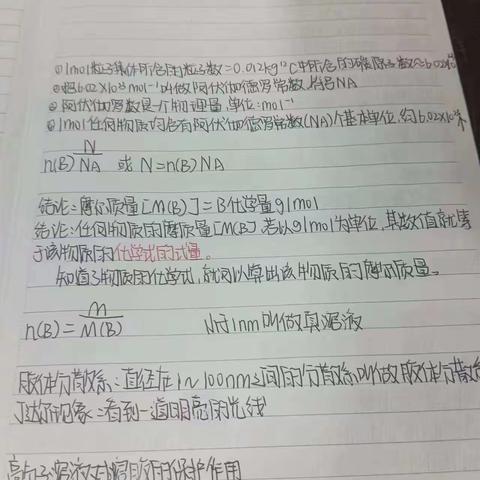 ①1mol粒子集体所含的粒子数=0.012kg¹²C中所含的碳原子数≈6.02×10
②把6.02×10²³mol⁻¹叫做阿伏伽德罗常数,符号NA
③阿伏伽罗数是个物理量,单位:mol⁻¹
④1mol任何物质均含有阿伏伽德罗常数(NA)个基本单位,约6.02×10²³个
n(B) N/NA 或 N=n(B)NA
结论:摩尔质量[M(B)]=B化学量g/mol
结论:任何物质的摩尔质量[M(B)],若以g/mol为单位,其数值就等
于该物质的化学式的式量。
知道了物质的化学式,就可以算出该物质的摩尔质量。
n(B)=m/M(B) 小于1nm叫做真溶液
胶体分散系:直径在1~100nm之间的分散系叫做胶体分散
丁达尔现象:看到一道明亮的光线
高分子溶液对溶胶的保护作用